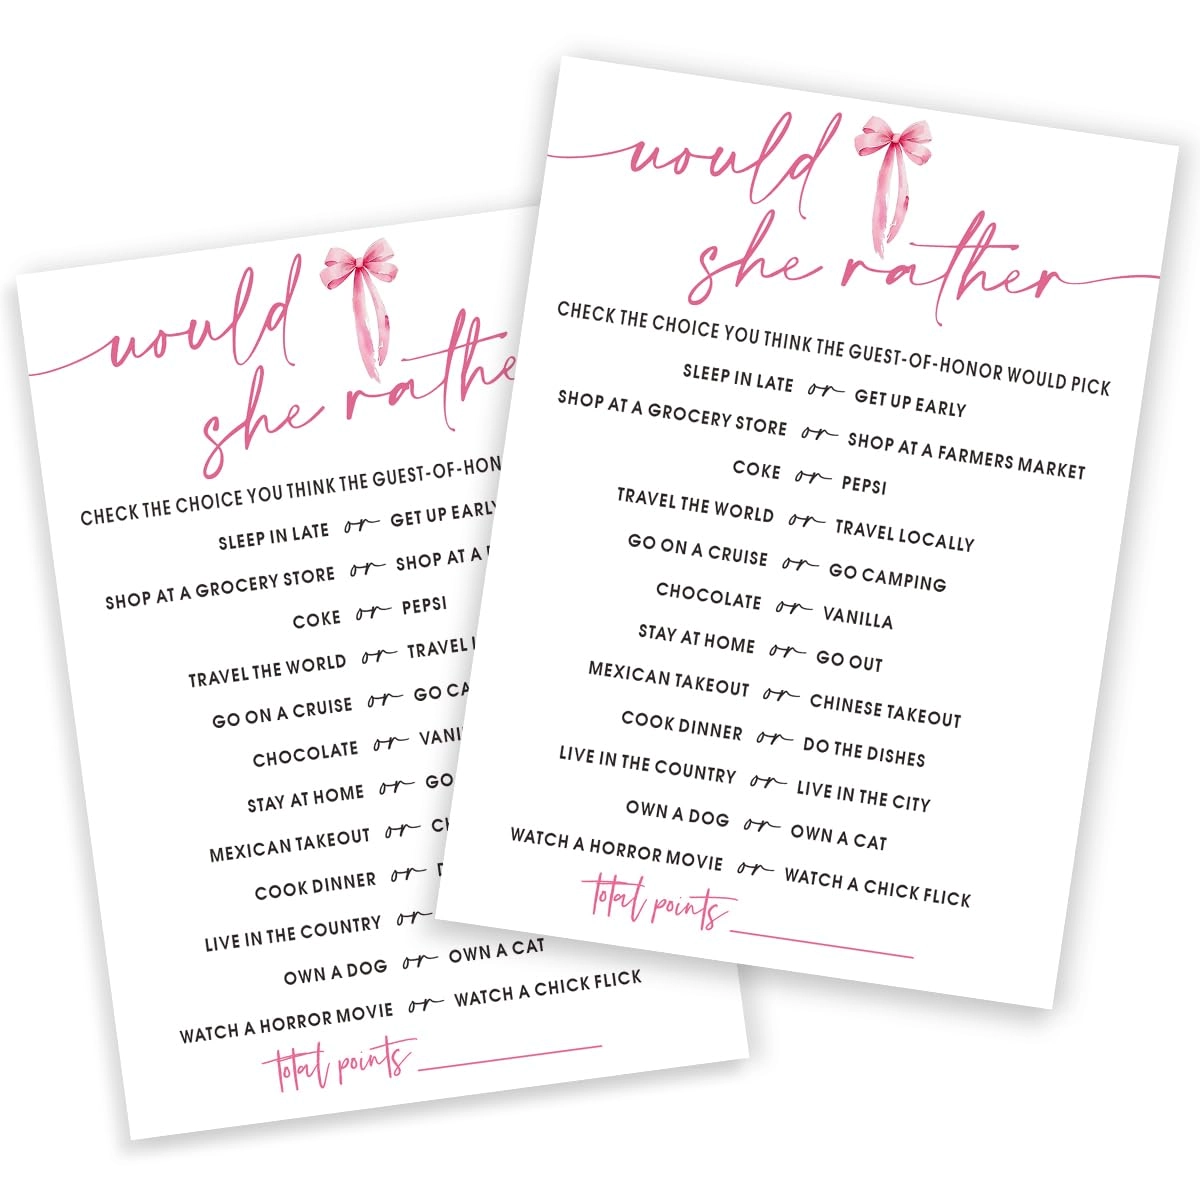 would
she rathe
CHECK THE CHOICE YOU THINK THE GUEST-OF-HON
SLEEP IN LATE or GET UP EARLY
SHOP AT A GROCERY STORE or SHOP AT A
COKE or PEPSI
TRAVEL THE WORLD or TRAVEL
GO ON A CRUISE or GO CA
CHOCOLATE or VANI
STAY AT HOME or GO
MEXICAN TAKEOUT or CH
COOK DINNER or D
LIVE IN THE COUNTRY or
OWN A DOG or OWN A CAT
WATCH A HORROR MOVIE or WATCH A CHICK FLICK
total points
would
she rather
CHECK THE CHOICE YOU THINK THE GUEST-OF-HONOR WOULD PICK
SLEEP IN LATE or GET UP EARLY
SHOP AT A GROCERY STORE or SHOP AT A FARMERS MARKET
COKE or PEPSI
TRAVEL THE WORLD or TRAVEL LOCALLY
GO ON A CRUISE or GO CAMPING
CHOCOLATE or VANILLA
STAY AT HOME or GO OUT
MEXICAN TAKEOUT or CHINESE TAKEOUT
COOK DINNER or DO THE DISHES
LIVE IN THE COUNTRY or LIVE IN THE CITY
OWN A DOG or OWN A CAT
WATCH A HORROR MOVIE or WATCH A CHICK FLICK
total points